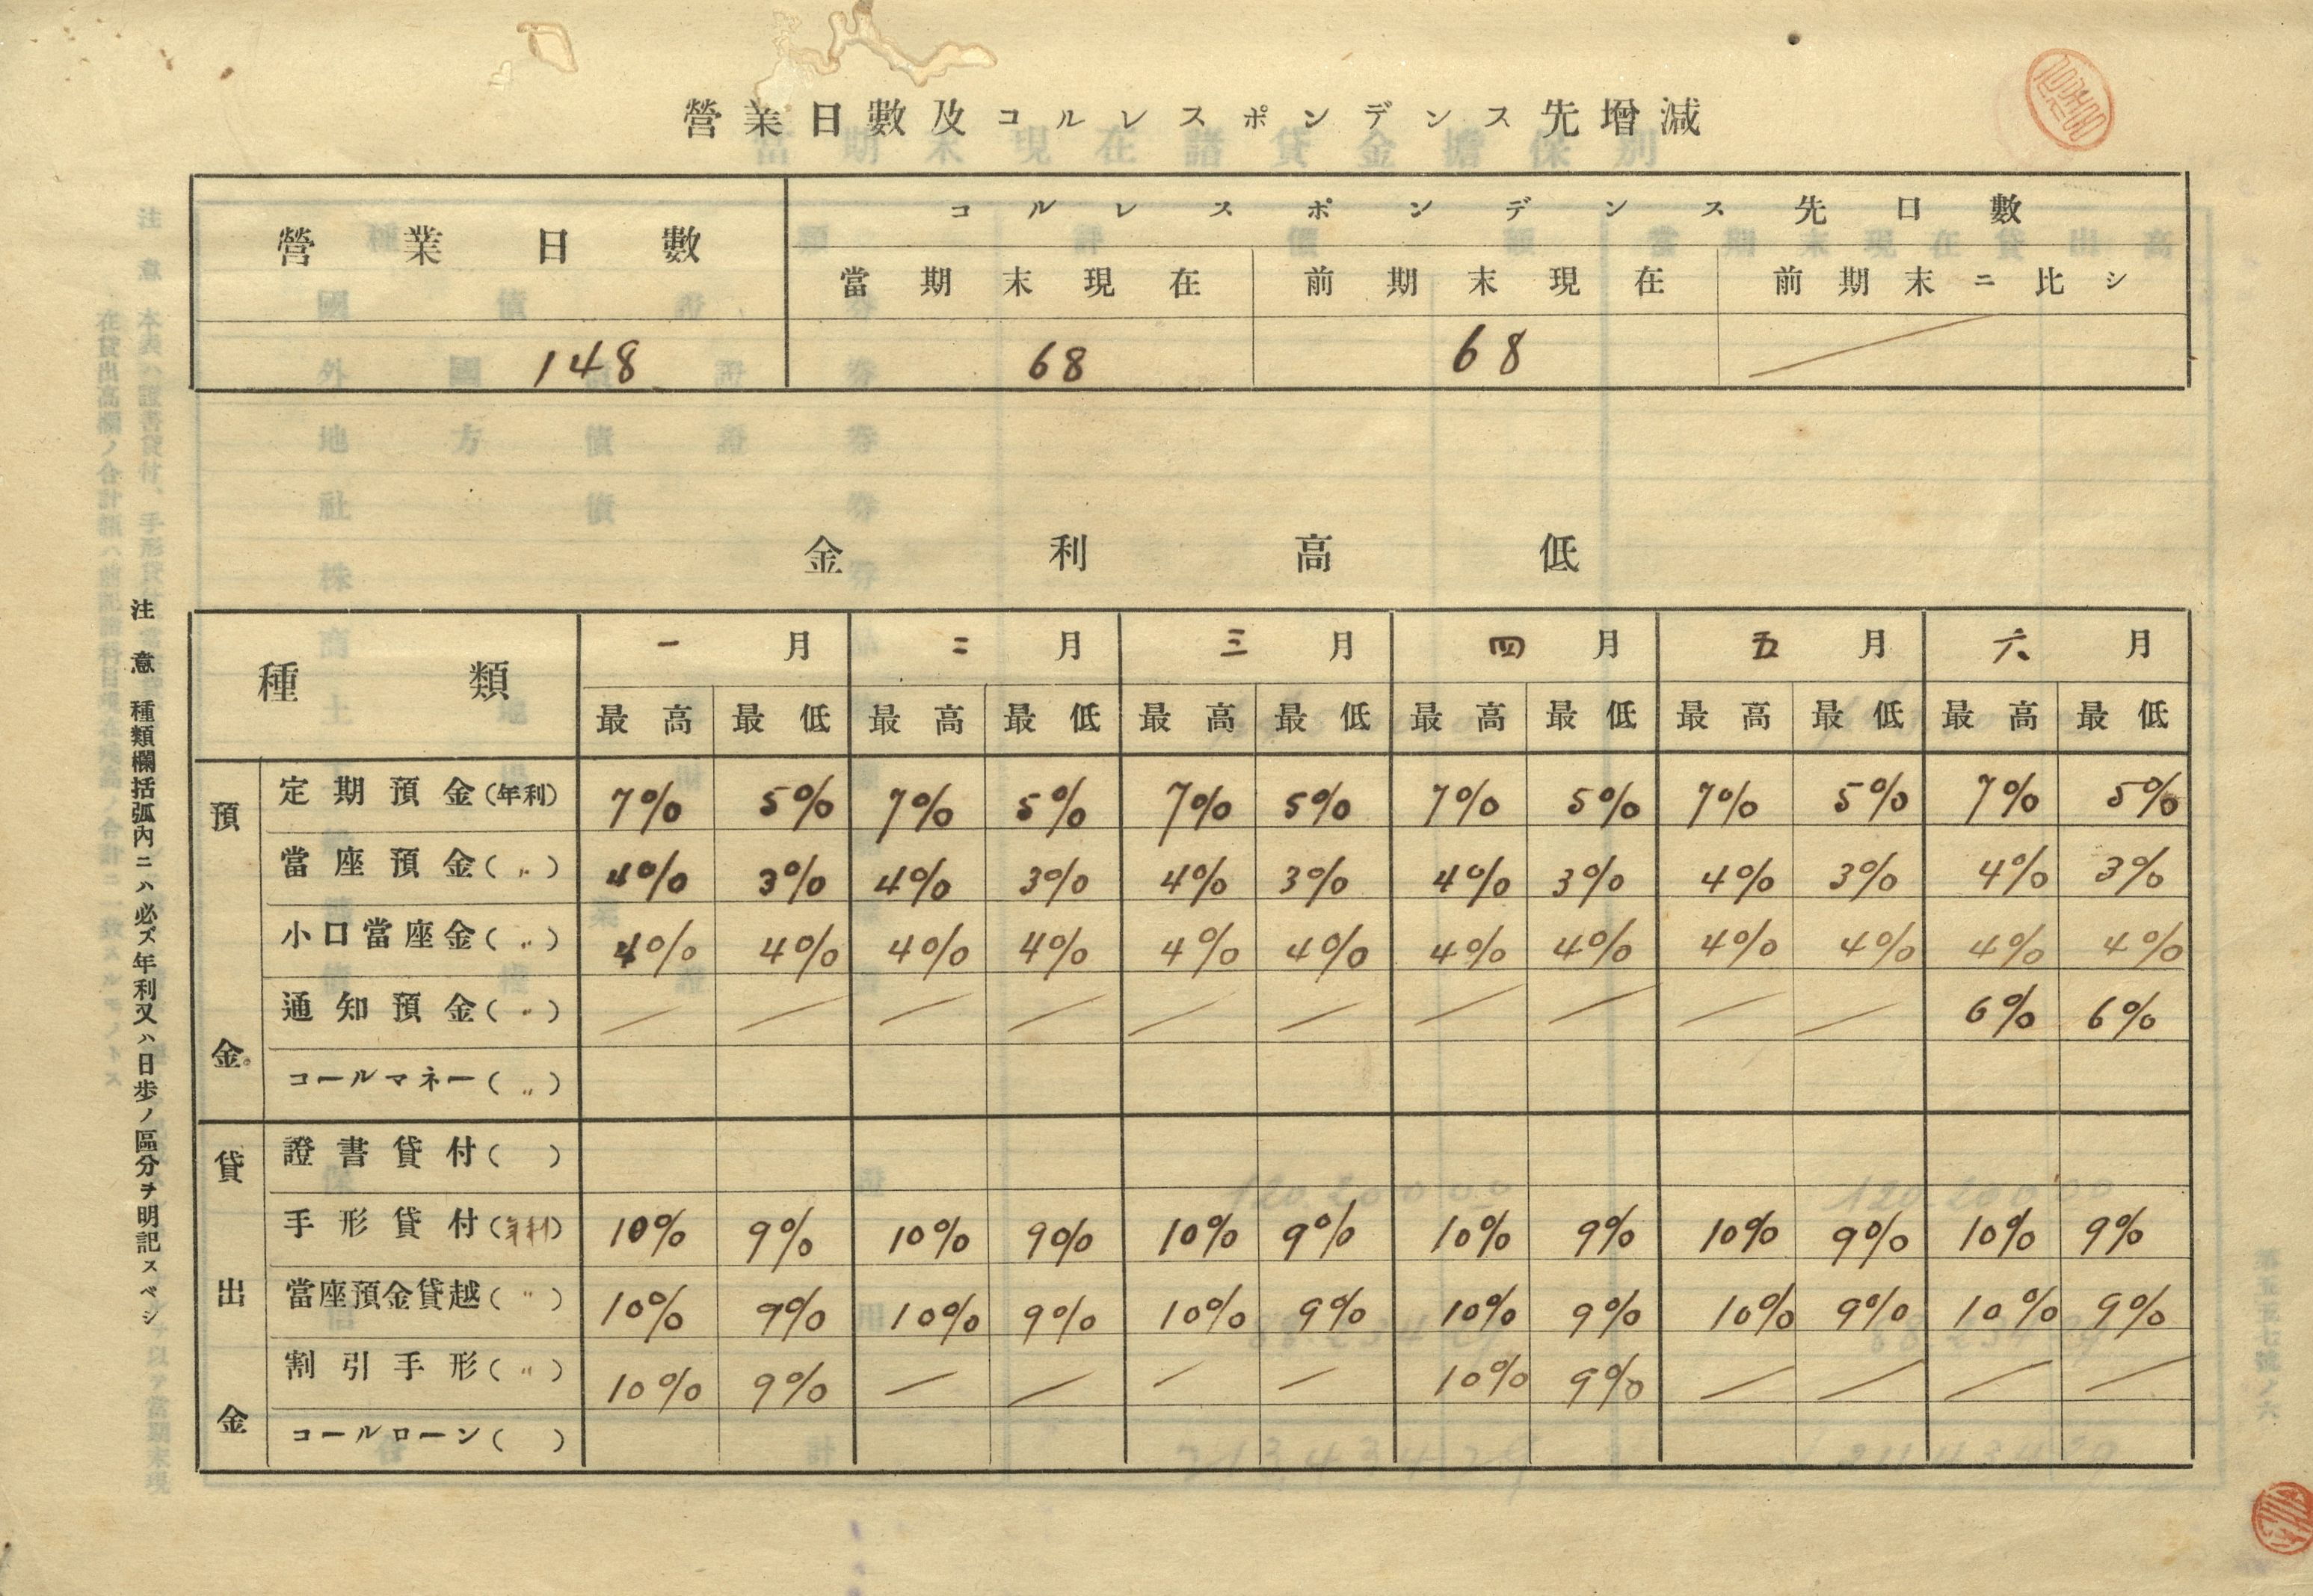 營業日數及コルレスポンデンス先增減
營業日數 コルレスポンデンス先口數
當期末現在 前期末現在 前期末ニ比シ
148 68 68
金利高低
種類 一月 二月 三月 四月 五月 六月
最高 最低 最高 最低 最高 最低 最高 最低 最高 最低 最高 最低
預金
定期預金(年利) 7% 5% 7% 5% 7% 5% 7% 5% 7% 5% 7% 5%
當座預金(〃) 4% 3% 4% 3% 4% 3% 4% 3% 4% 3% 4% 3%
小口當座金(〃) 4% 4% 4% 4% 4% 4% 4% 4% 4% 4% 4% 4%
通知預金(〃) 6% 6%
コールマネー(〃)
貸出金
證書貸付( )
手形貸付(年利) 10% 9% 10% 9% 10% 9% 10% 9% 10% 9% 10% 9%
當座預金貸越(〃) 10% 9% 10% 9% 10% 9% 10% 9% 10% 9% 10% 9%
割引手形(〃) 10% 9% 10% 9%
コールローン( )
注意 種類欄括弧內ニハ必ズ年利又ハ日步ノ區分ヲ明記スベシ